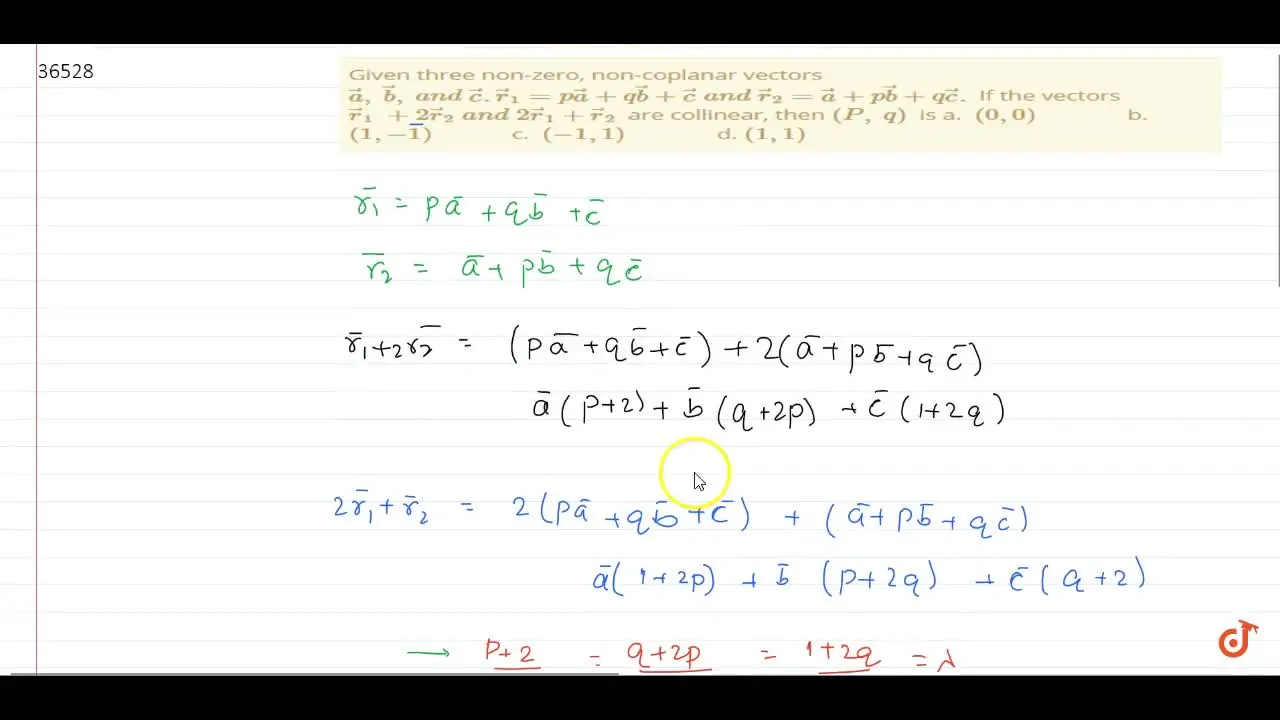 36528
Given three non-zero, non-coplanar vectors
\vec{a}, \vec{b}, and \vec{c}. \vec{r}_1 = p\vec{a} + q\vec{b} + \vec{c} and \vec{r}_2 = \vec{a} + p\vec{b} + q\vec{c}. If the vectors
\vec{r}_1 + 2\vec{r}_2 and 2\vec{r}_1 + \vec{r}_2 are collinear, then (P, q) is a. (0, 0) b.
(1, −1) c. (−1, 1) d. (1, 1)
r̄₁ = pā + qb̄ + c̄
r̄₂ = ā + pb̄ + qc̄
r̄₁+2r̄₂ = (pā + qb̄ + c̄) + 2(ā + pb̄ + qc̄)
ā(p+2) + b̄(q+2p) + c̄(1+2q)
2r̄₁ + r̄₂ = 2(pā + qb̄ + c̄) + (ā + pb̄ + qc̄)
ā(1+2p) + b̄(p+2q) + c̄(q+2)
→ p+2 = q+2p = 1+2q = λ